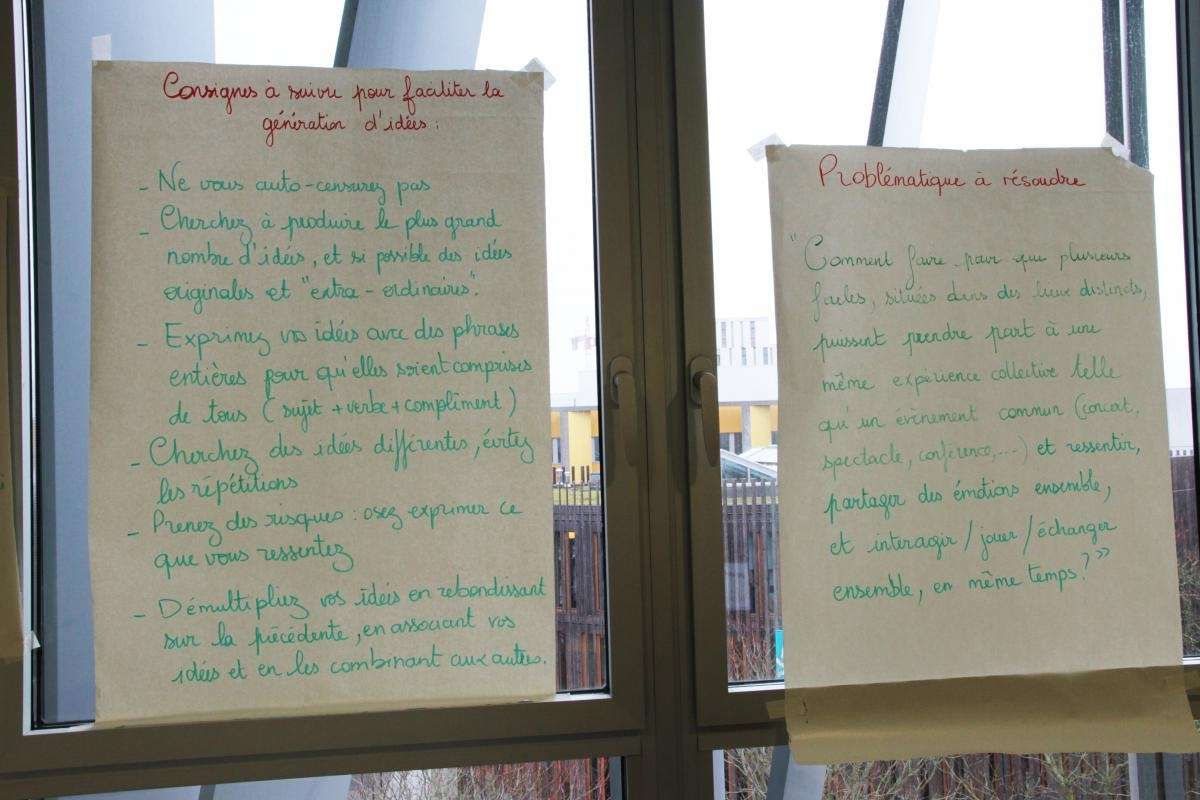 Consignes à suivre pour faciliter la
génération d'idées :
- Ne vous auto-censurez pas
- Cherchez à produire le plus grand
nombre d'idées, et si possible des idées
originales et "extra-ordinaires".
- Exprimez vos idées avec des phrases
entières pour qu'elles soient comprises
de tous (sujet + verbe + compliment)
- Cherchez des idées différentes, évitez
les répétitions
- Prenez des risques : osez exprimer ce
que vous ressentez
- Démultipliez vos idées en rebondissant
sur la précédente, en associant vos
idées et en les combinant aux autres.
Problématique à résoudre
"Comment faire pour que plusieurs
foules, situées dans des lieux distincts,
puissent prendre part à une
même expérience collective telle
qu'un évènement commun (concert,
spectacle, conférence,...) et ressentir,
partager des émotions ensemble,
et interagir / jouer / échanger
ensemble, en même temps ? »